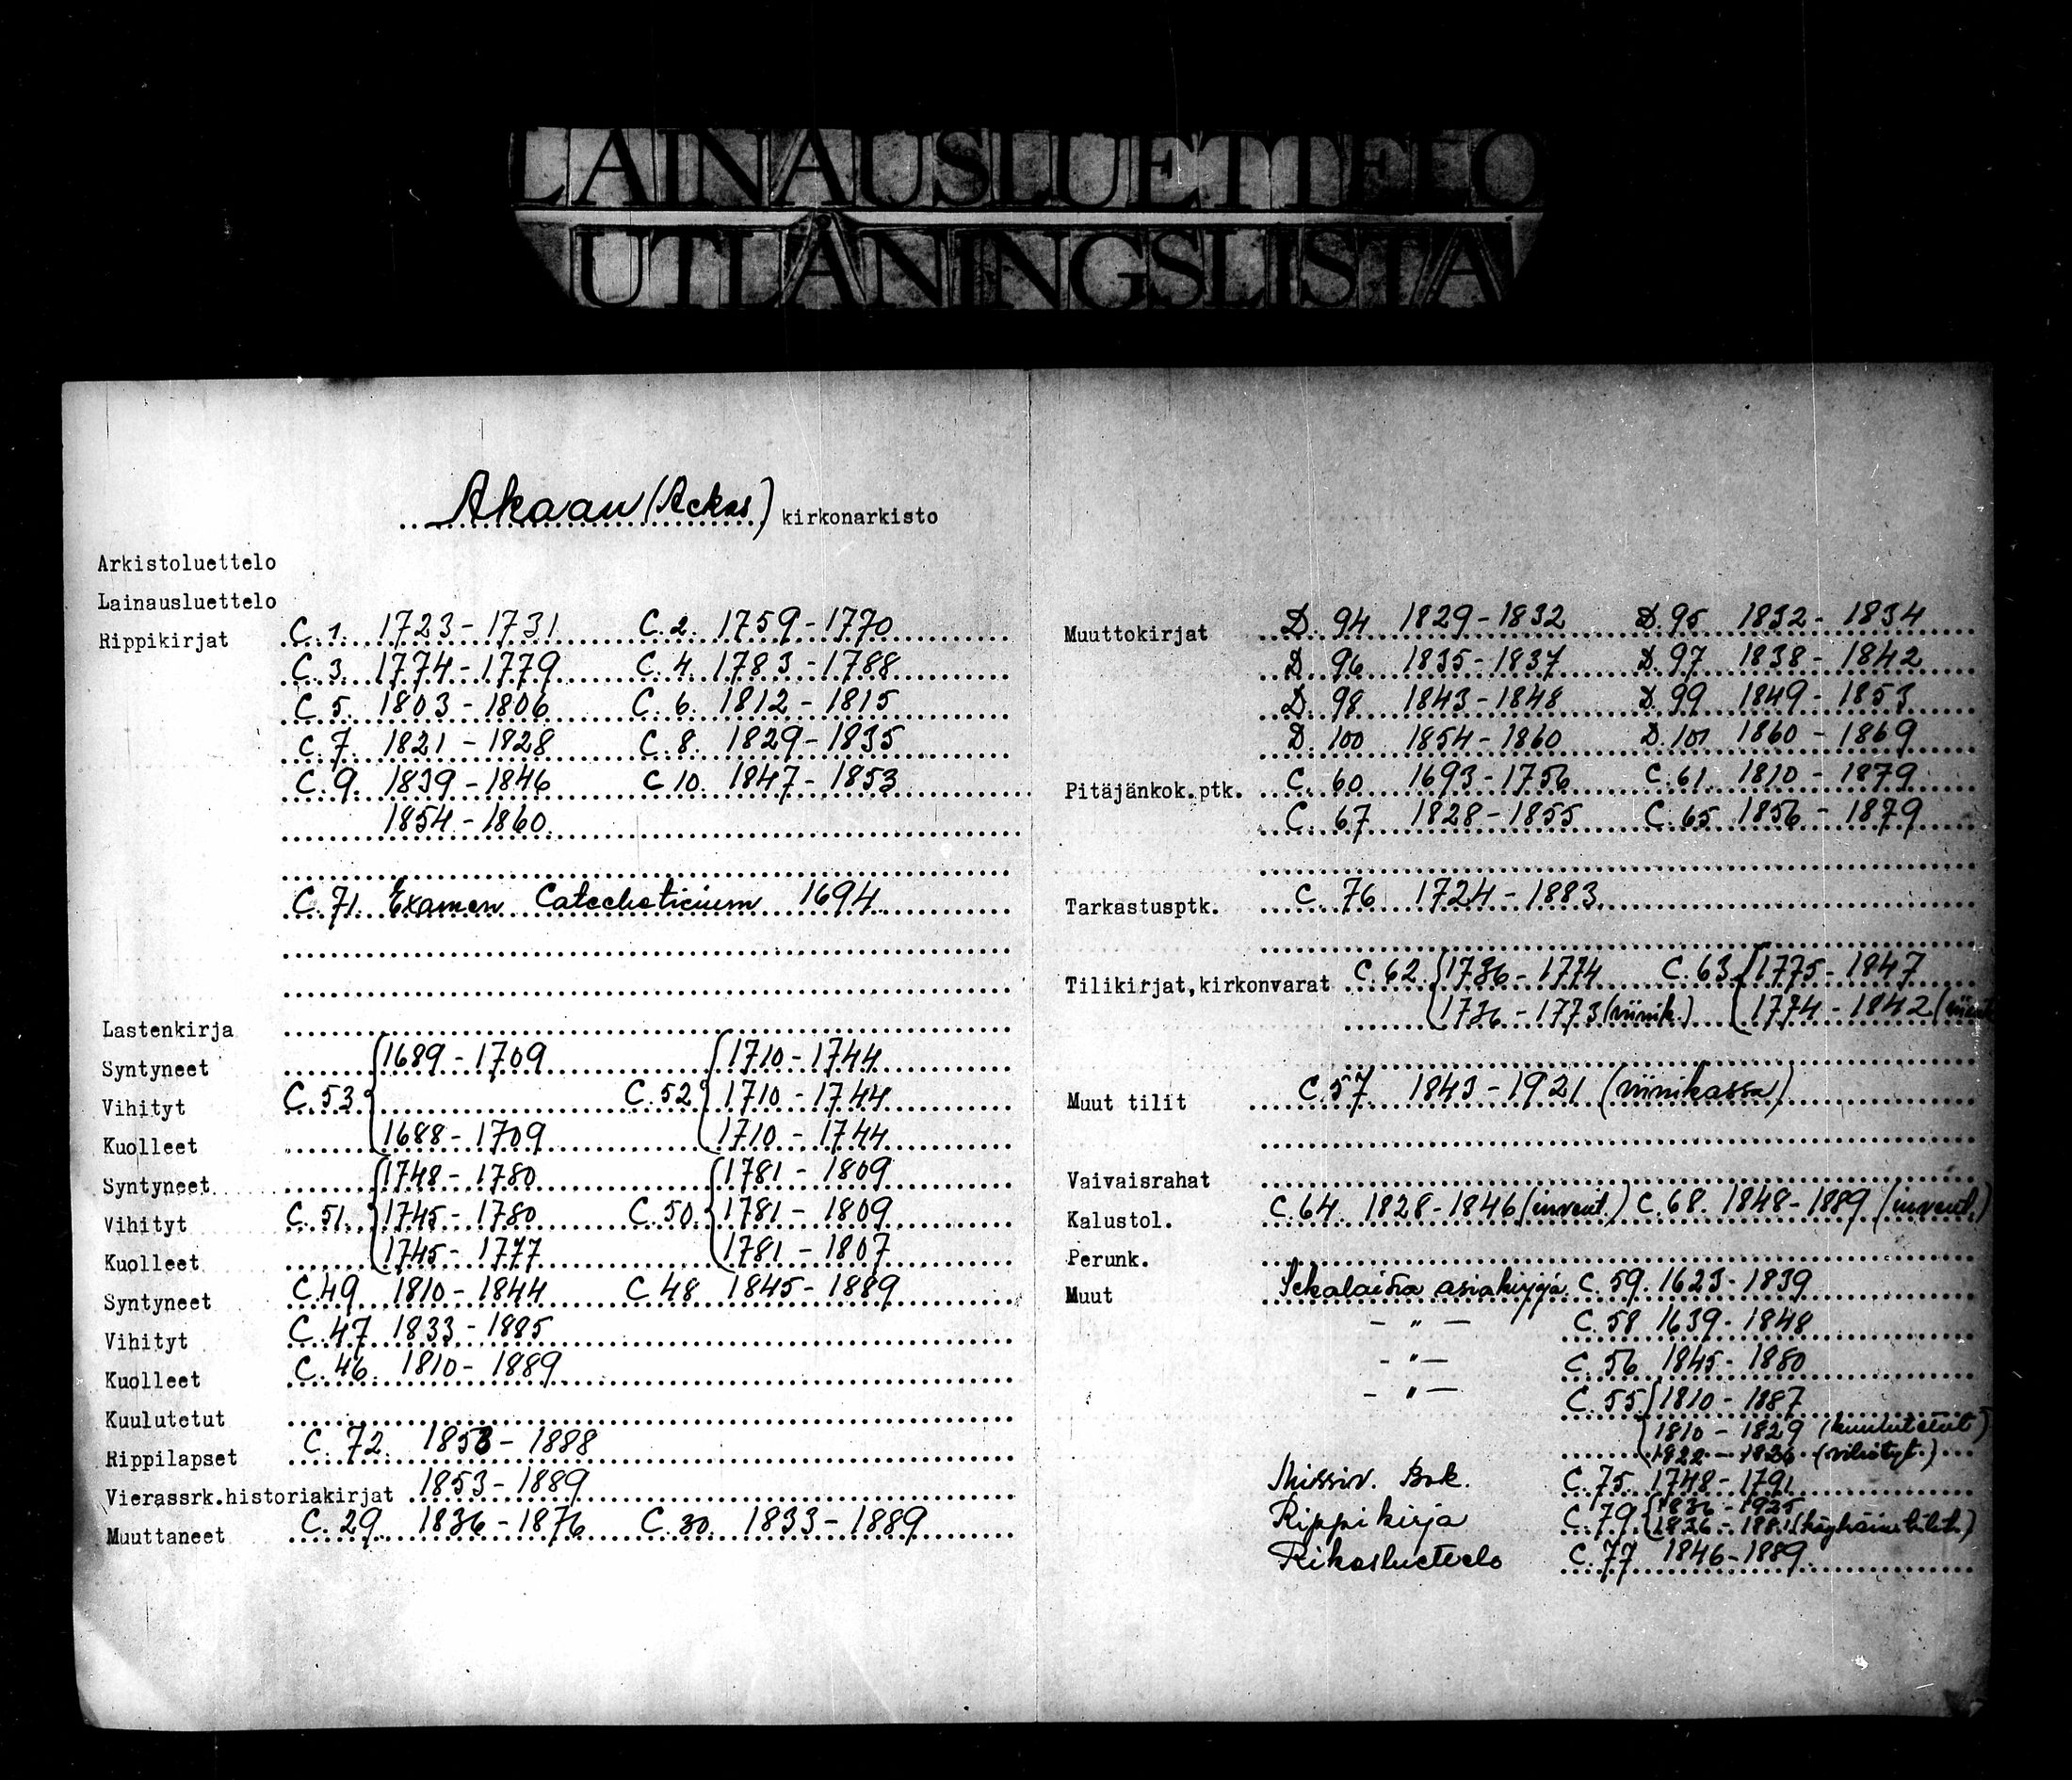 LAINAUSLUETTELO
UTLÅNINGSLISTA
Akaan (Ackas) kirkonarkisto
Arkistoluettelo
Lainausluettelo
Rippikirjat C. 1. 1723-1731 C. 2. 1759-1770
C. 3. 1774-1779 C. 4. 1783-1788
C. 5. 1803-1806 C. 6. 1812-1815
C. 7. 1821-1828 C. 8. 1829-1835
C. 9. 1839-1846 C 10. 1847-1853
1854-1860
C. 71. Examen Catecheticium 1694
Lastenkirja
Syntyneet 1689-1709 1710-1744
Vihityt C. 53 C. 52 1710-1744
Kuolleet 1688-1709 1710-1744
Syntyneet 1748-1780 1781-1809
Vihityt C. 51. 1745-1780 C. 50. 1781-1809
Kuolleet 1745-1777 1781-1807
Syntyneet C. 49 1810-1844 C. 48 1845-1889
Vihityt C. 47 1833-1885
Kuolleet C. 46. 1810-1889
Kuulutetut
Rippilapset C. 72. 1853-1888
Vierassrk.historiakirjat 1853-1889
Muuttaneet C. 29. 1836-1876 C. 30. 1833-1889
Muuttokirjat D. 94 1829-1832 D. 95 1832-1834
D. 96 1835-1837 D. 97 1838-1842
D. 98 1843-1848 D. 99 1849-1853
D. 100 1854-1860 D. 101 1860-1869
Pitäjänkok.ptk. C. 60 1693-1756 C. 61 1810-1879
C. 67 1828-1855 C. 65 1856-1879
Tarkastusptk. C. 76 1724-1883
Tilikirjat,kirkonvarat C. 62 1736-1774 C. 63 1775-1847
1736-1773 (viinik.) 1774-1842
Muut tilit C. 57 1843-1921 (viinikassa)
Vaivaisrahat
Kalustol. C. 64. 1828-1846 (invent.) C. 68. 1848-1889 (invent.)
Perunk.
Muut Sekalaisia asiakirjoja C. 59. 1623-1839
- " - C. 58 1639-1848
- " - C. 56 1845-1880
- " - C. 55 1810-1887
1810-1829 (kuulutetut)
1822-1826 (vihityt.)
Missiv. Bok. C. 75. 1748-1791
Rippikirja C. 79 1836-1925
1836-1881
Rikosluettelo C. 77 1846-1889